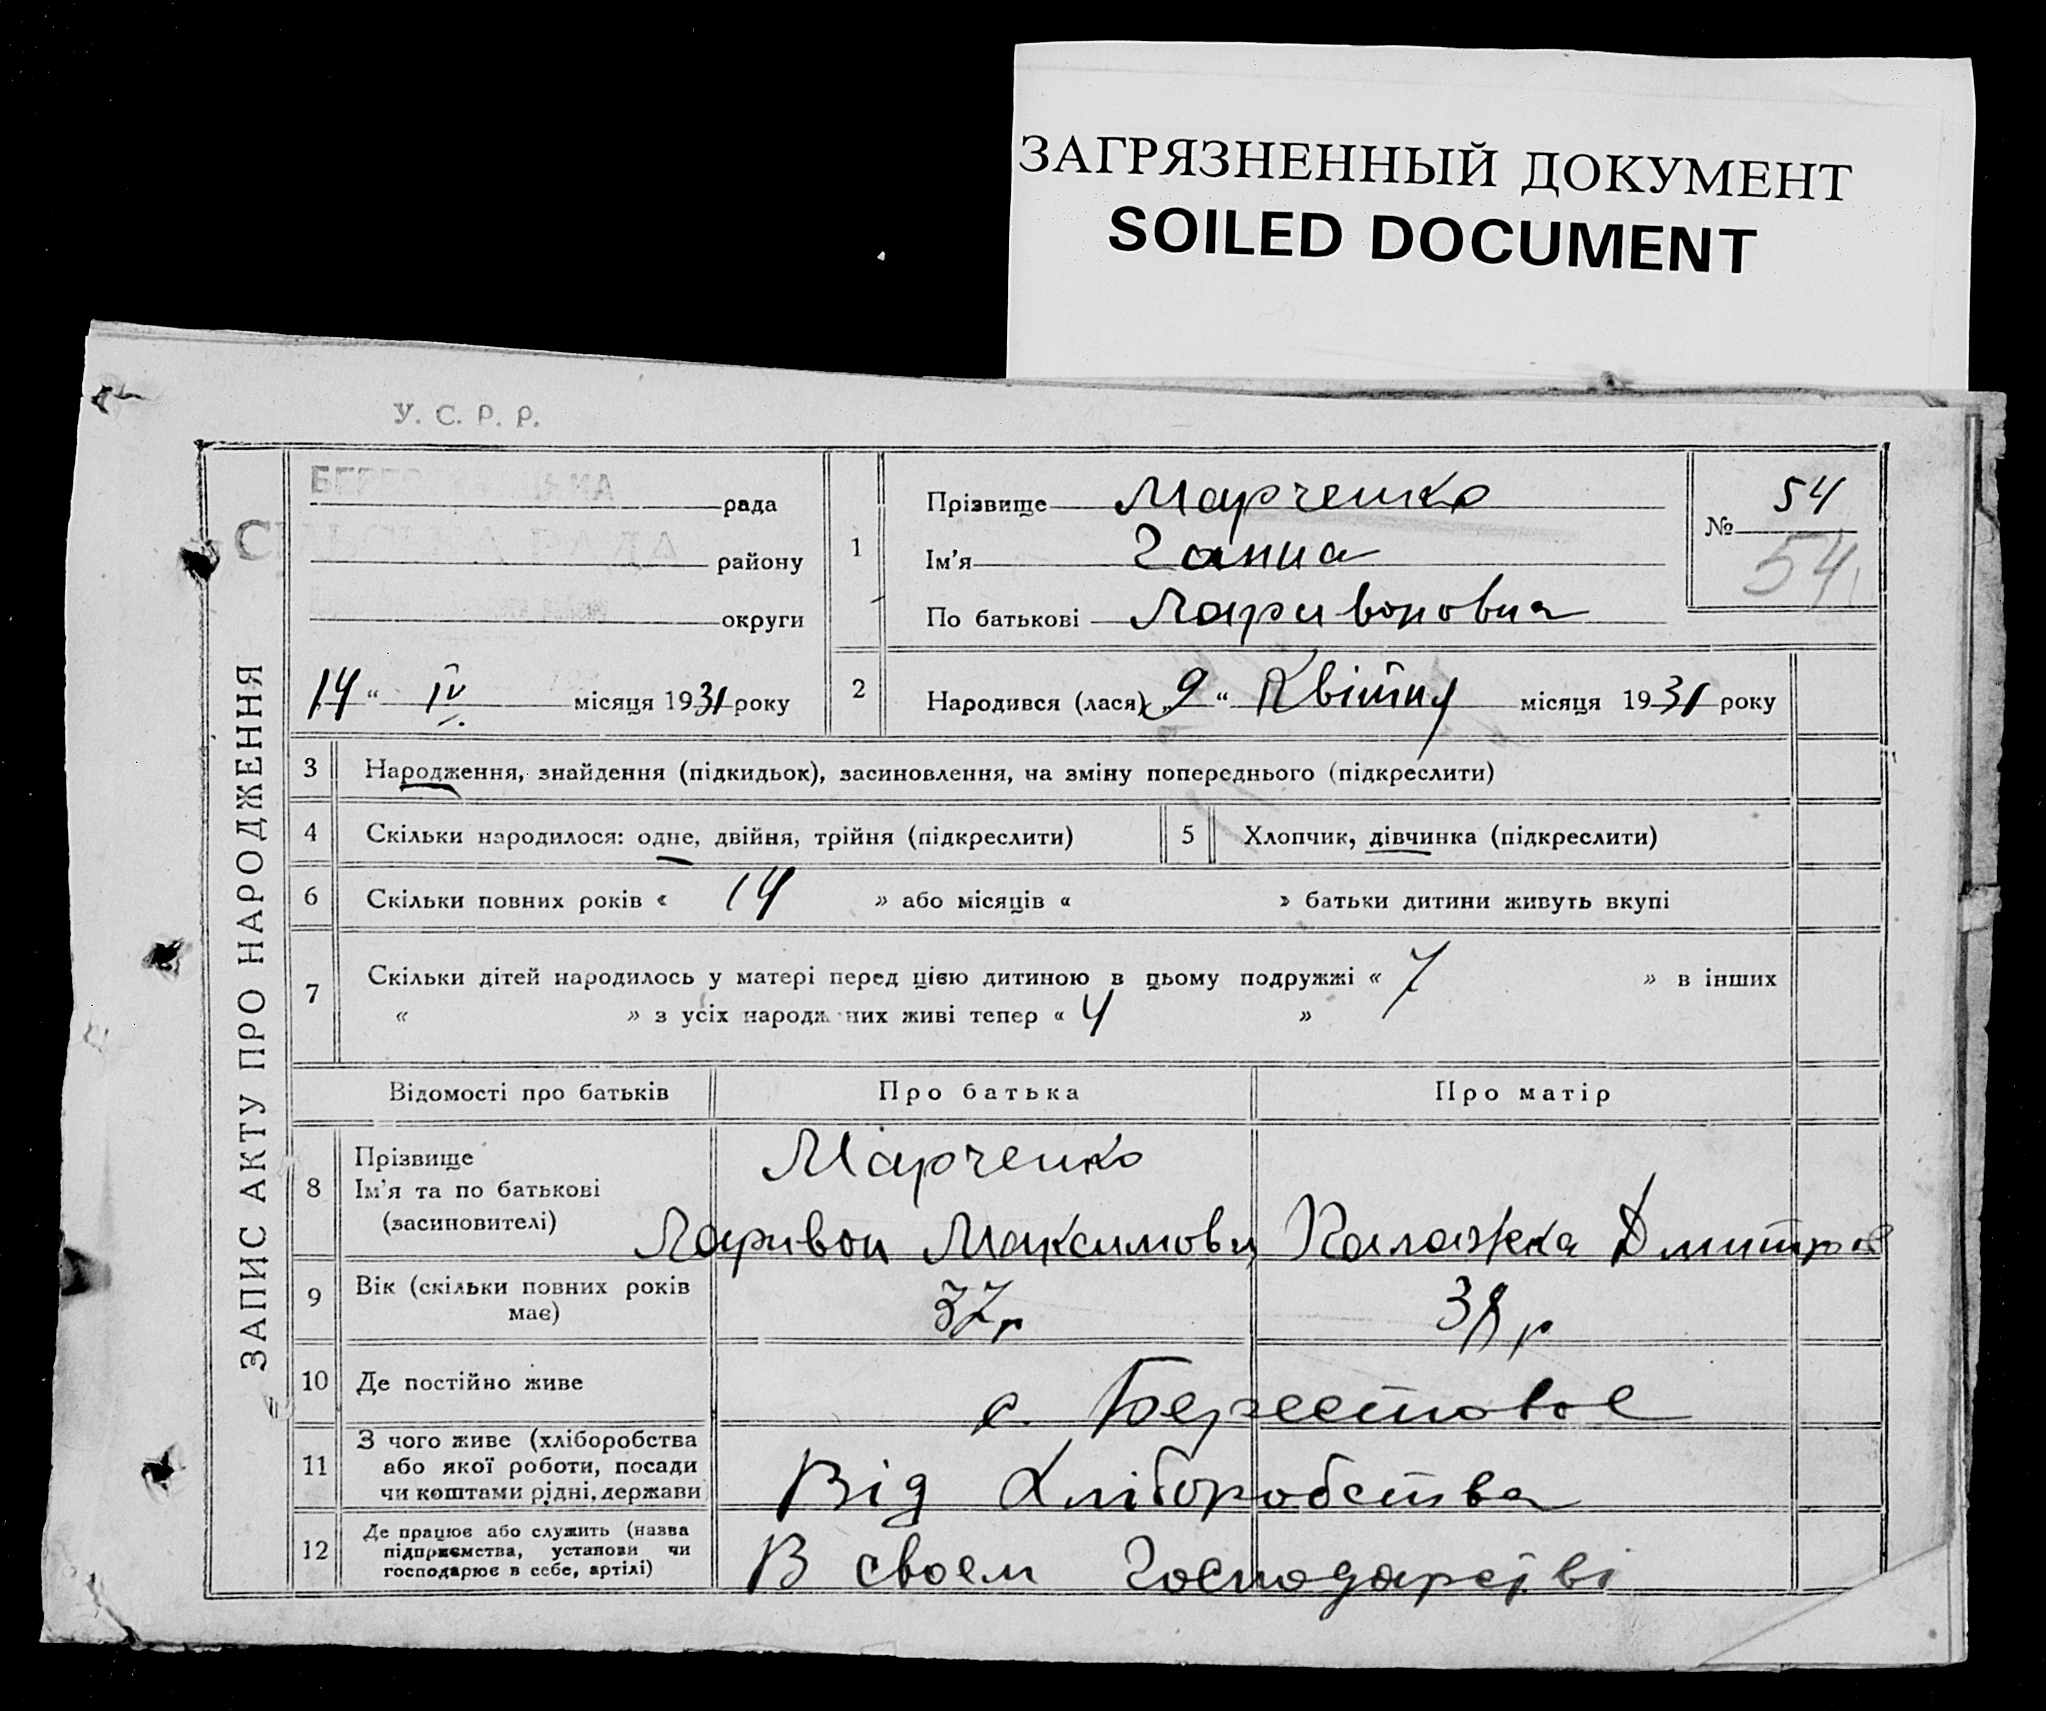 ЗАГРЯЗНЕННЫЙ ДОКУМЕНТ
SOILED DOCUMENT
У. С. Р. Р.
ЗАПИС АКТУ ПРО НАРОДЖЕННЯ
рада
РАДА
району
округи
14 “ IV місяця 1931 року
1
Прізвище Марченко
Ім’я Ганна
По батькові Ларивоновна
№ 54
54
2 Народився (лася) „9“ Квітня місяця 1931 року
3 Народження, знайдення (підкидьок), засиновлення, на зміну попереднього (підкреслити)
4 Скільки народилося: одне, двійня, трійня (підкреслити) 5 Хлопчик, дівчинка (підкреслити)
6 Скільки повних років « 14 » або місяців « » батьки дитини живуть вкупі
7 Скільки дітей народилось у матері перед цією дитиною в цьому подружжі « 7 » в інших
« » з усіх народж них живі тепер « 4 »
Відомості про батьків Про батька Про матір
8 Прізвище Марченко
Ім’я та по батькові
(засиновителі) Ларивон Максимови Палажка Дмитров
9 Вік (скільки повних років
має) 37 р 38 р
10 Де постійно живе с. Берестовое
11 З чого живе (хліборобства
або якої роботи, посади
чи коштами рідні, держави Від Хліборобства
12 Де працює або служить (назва
підприємства, установи чи
господарює в себе, артілі) В своем Господарстві